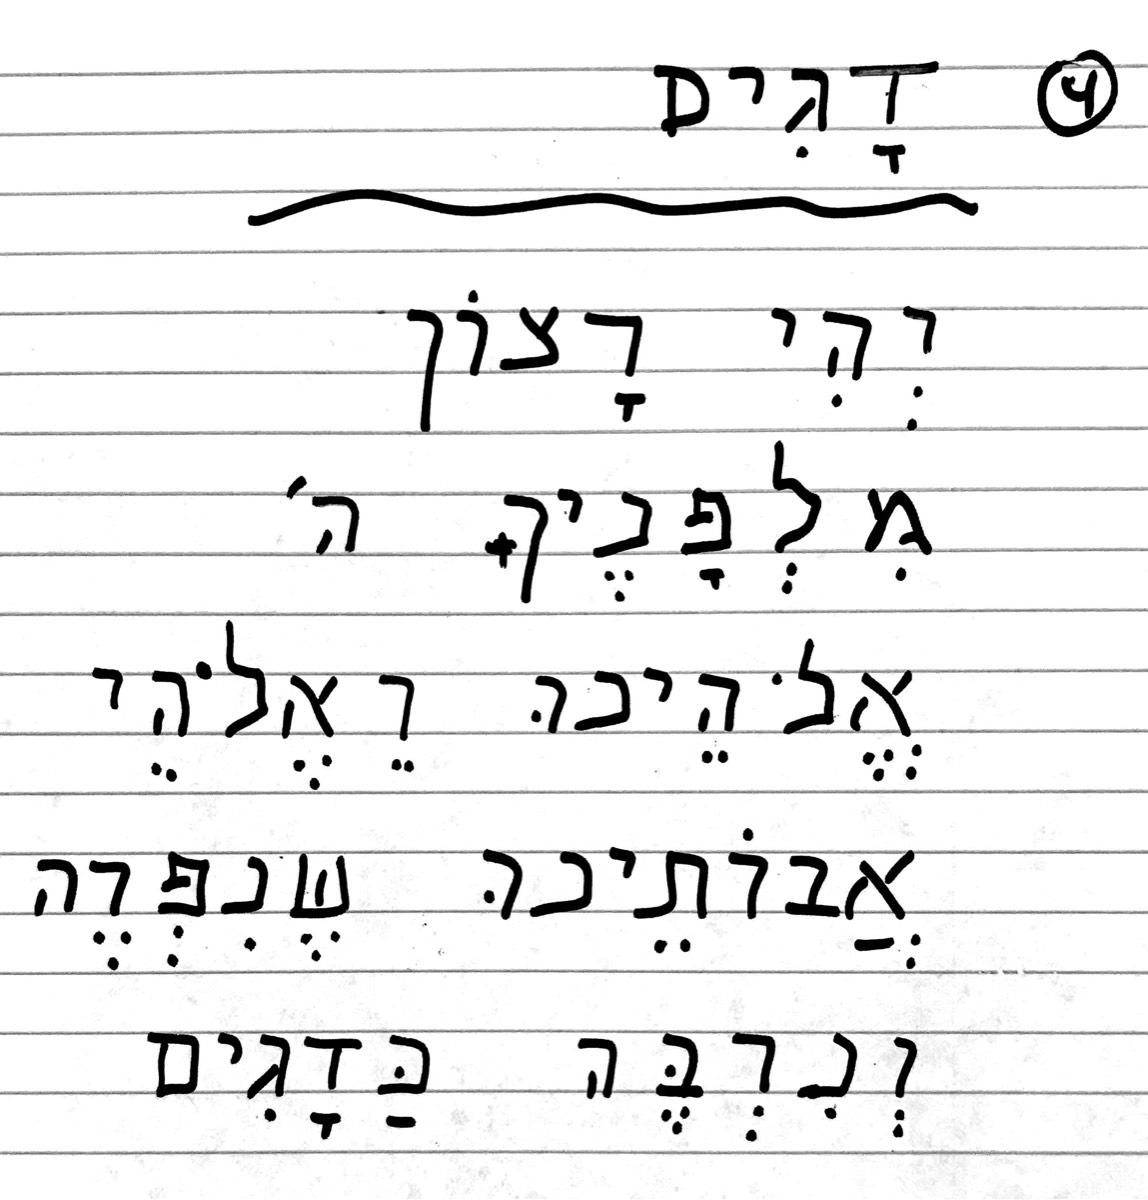 ④ דָגִים
יְהִי רָצוֹן
מִלְפָנֶיךָ ה׳
אֱלֹהֵינוּ וֵאֶלֹהֵי
אֲבוֹתֵינוּ שֶנִפְרֶה
וְנִרְבֶּה כַּדָגִים